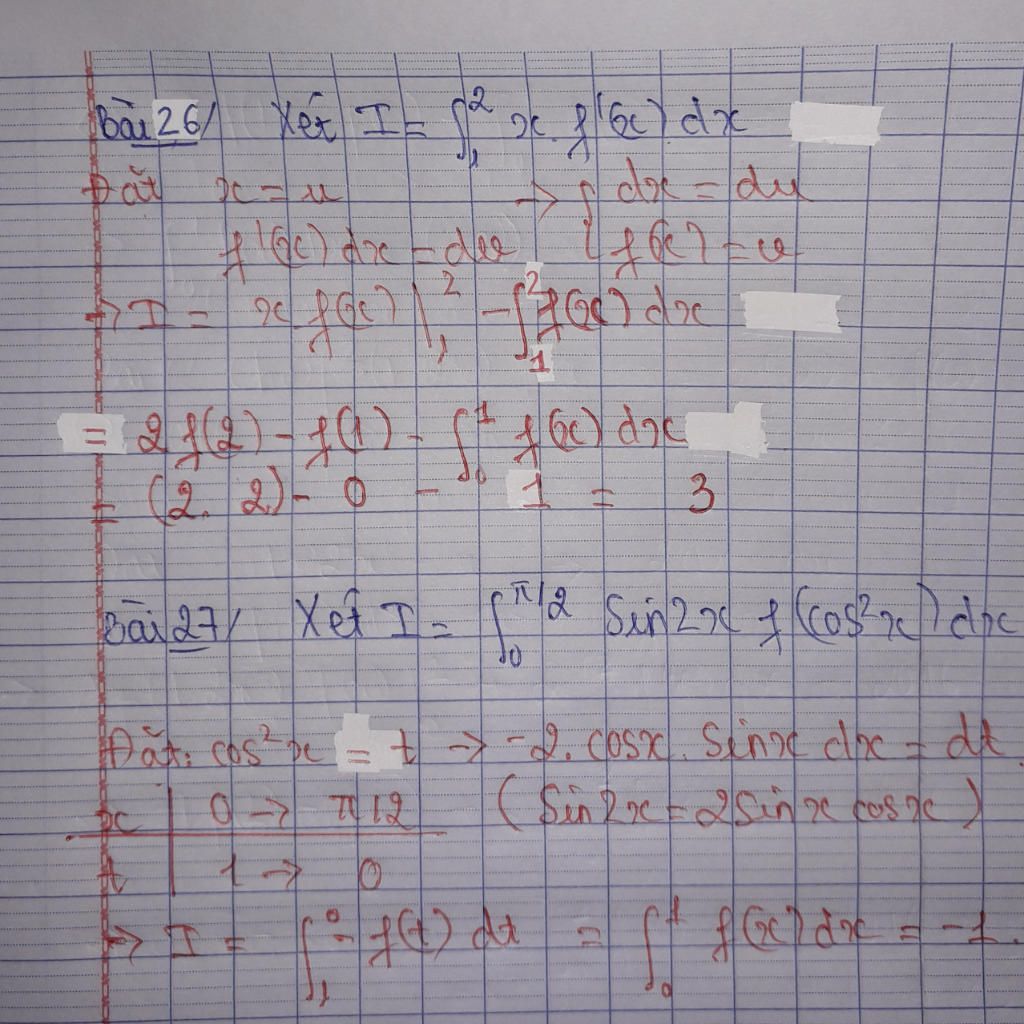 Bài 26/ Xét I = ∫₁² x. f'(x) dx
Đặt x = u → { dx = du
f'(x) dx = dv { f(x) = v
→ I = x f(x) |₁² - ∫₁² f(x) dx
= 2 f(2) - f(1) - ∫₀¹ f(x) dx
= (2. 2) - 0 - 1 = 3
Bài 27/ Xét I = ∫₀^π/2 Sin2x f(cos²x) dx
Đặt: cos²x = t → -2. cosx. Sinx dx = dt
x | 0 → π/2 (Sin2x = 2Sinx cosx)
t | 1 → 0
→ I = ∫₁⁰ - f(t) dt = ∫₀¹ f(x) dx = -1.